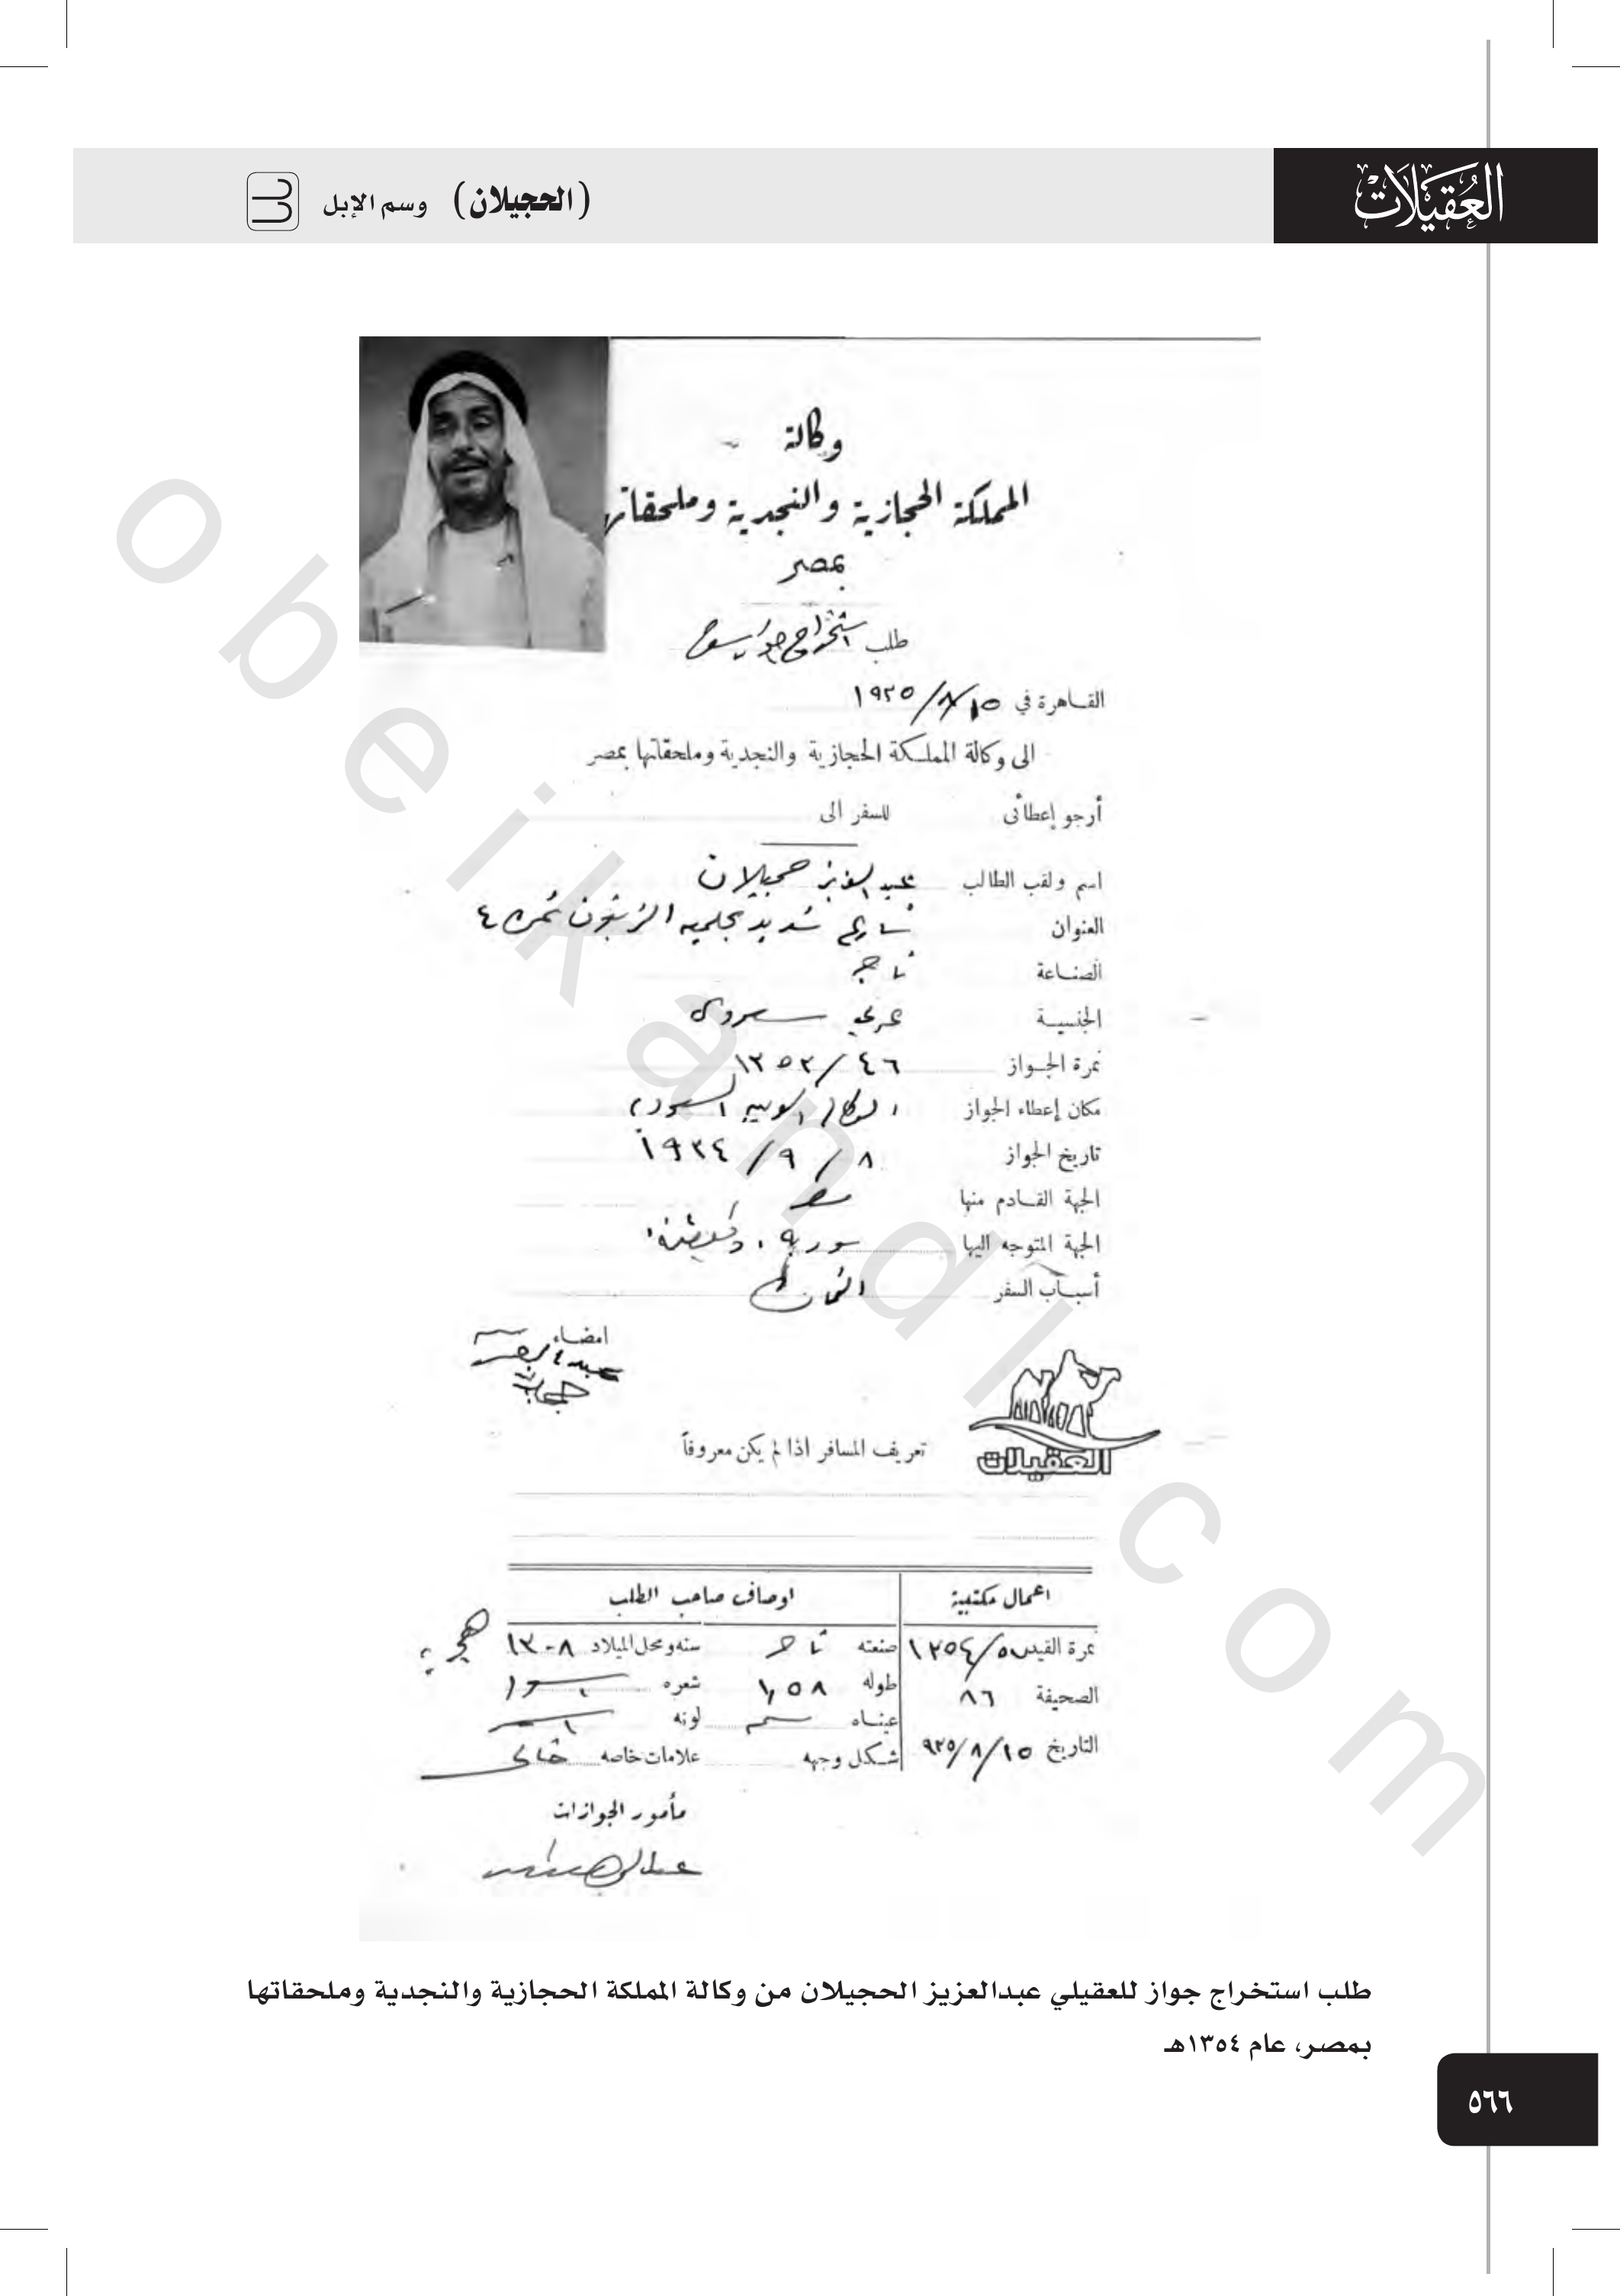 العُقيلات
(الحجيلان) وسم الإبل
وكالة
المملكة الحجازية والنجدية وملحقاتها
بمصر
طلب استخراج جواز
القاهرة في ١٥/٨/١٩٣٥
الى وكالة المملكة الحجازية والنجدية وملحقاتها بمصر
أرجو إعطائى للسفر الى
اسم ولقب الطالب عبد العزيز حجيلان
العنوان شارع شديد بحلمية الزيتون نمرة ٤
الصناعة تاجر
الجنسية عربي سعودى
نمرة الجواز ٤٦/١٣٥٣
مكان إعطاء الجواز الوكالة العربية السعودية
تاريخ الجواز ٨/٩/١٩٣٤
الجهة القادم منها مصر
الجهة المتوجه اليها سورية، وفلسطين
أسباب السفر التجارة
امضاء
عبد العزيز
حجيلان
العقيلات
تعريف المسافر اذا لم يكن معروفاً
اعمال مكتبية اوصاف صاحب الطلب
نمرة القيد /١٣٥٤ صنعته تاجر سنه ومحل الميلاد ١٣٠٨ هجرية
الصحيفة ٨٦ طوله ١,٥٨ شعره اسود
عيناه لونه اسمر
التاريخ ١٥/٨/٩٣٥ شكل وجهه علامات خاصه
مأمور الجوازات
طلب استخراج جواز للعقيلي عبدالعزيز الحجيلان من وكالة المملكة الحجازية والنجدية وملحقاتها
بمصر، عام ١٣٥٤هـ
٥٦٦
obeikandl.com